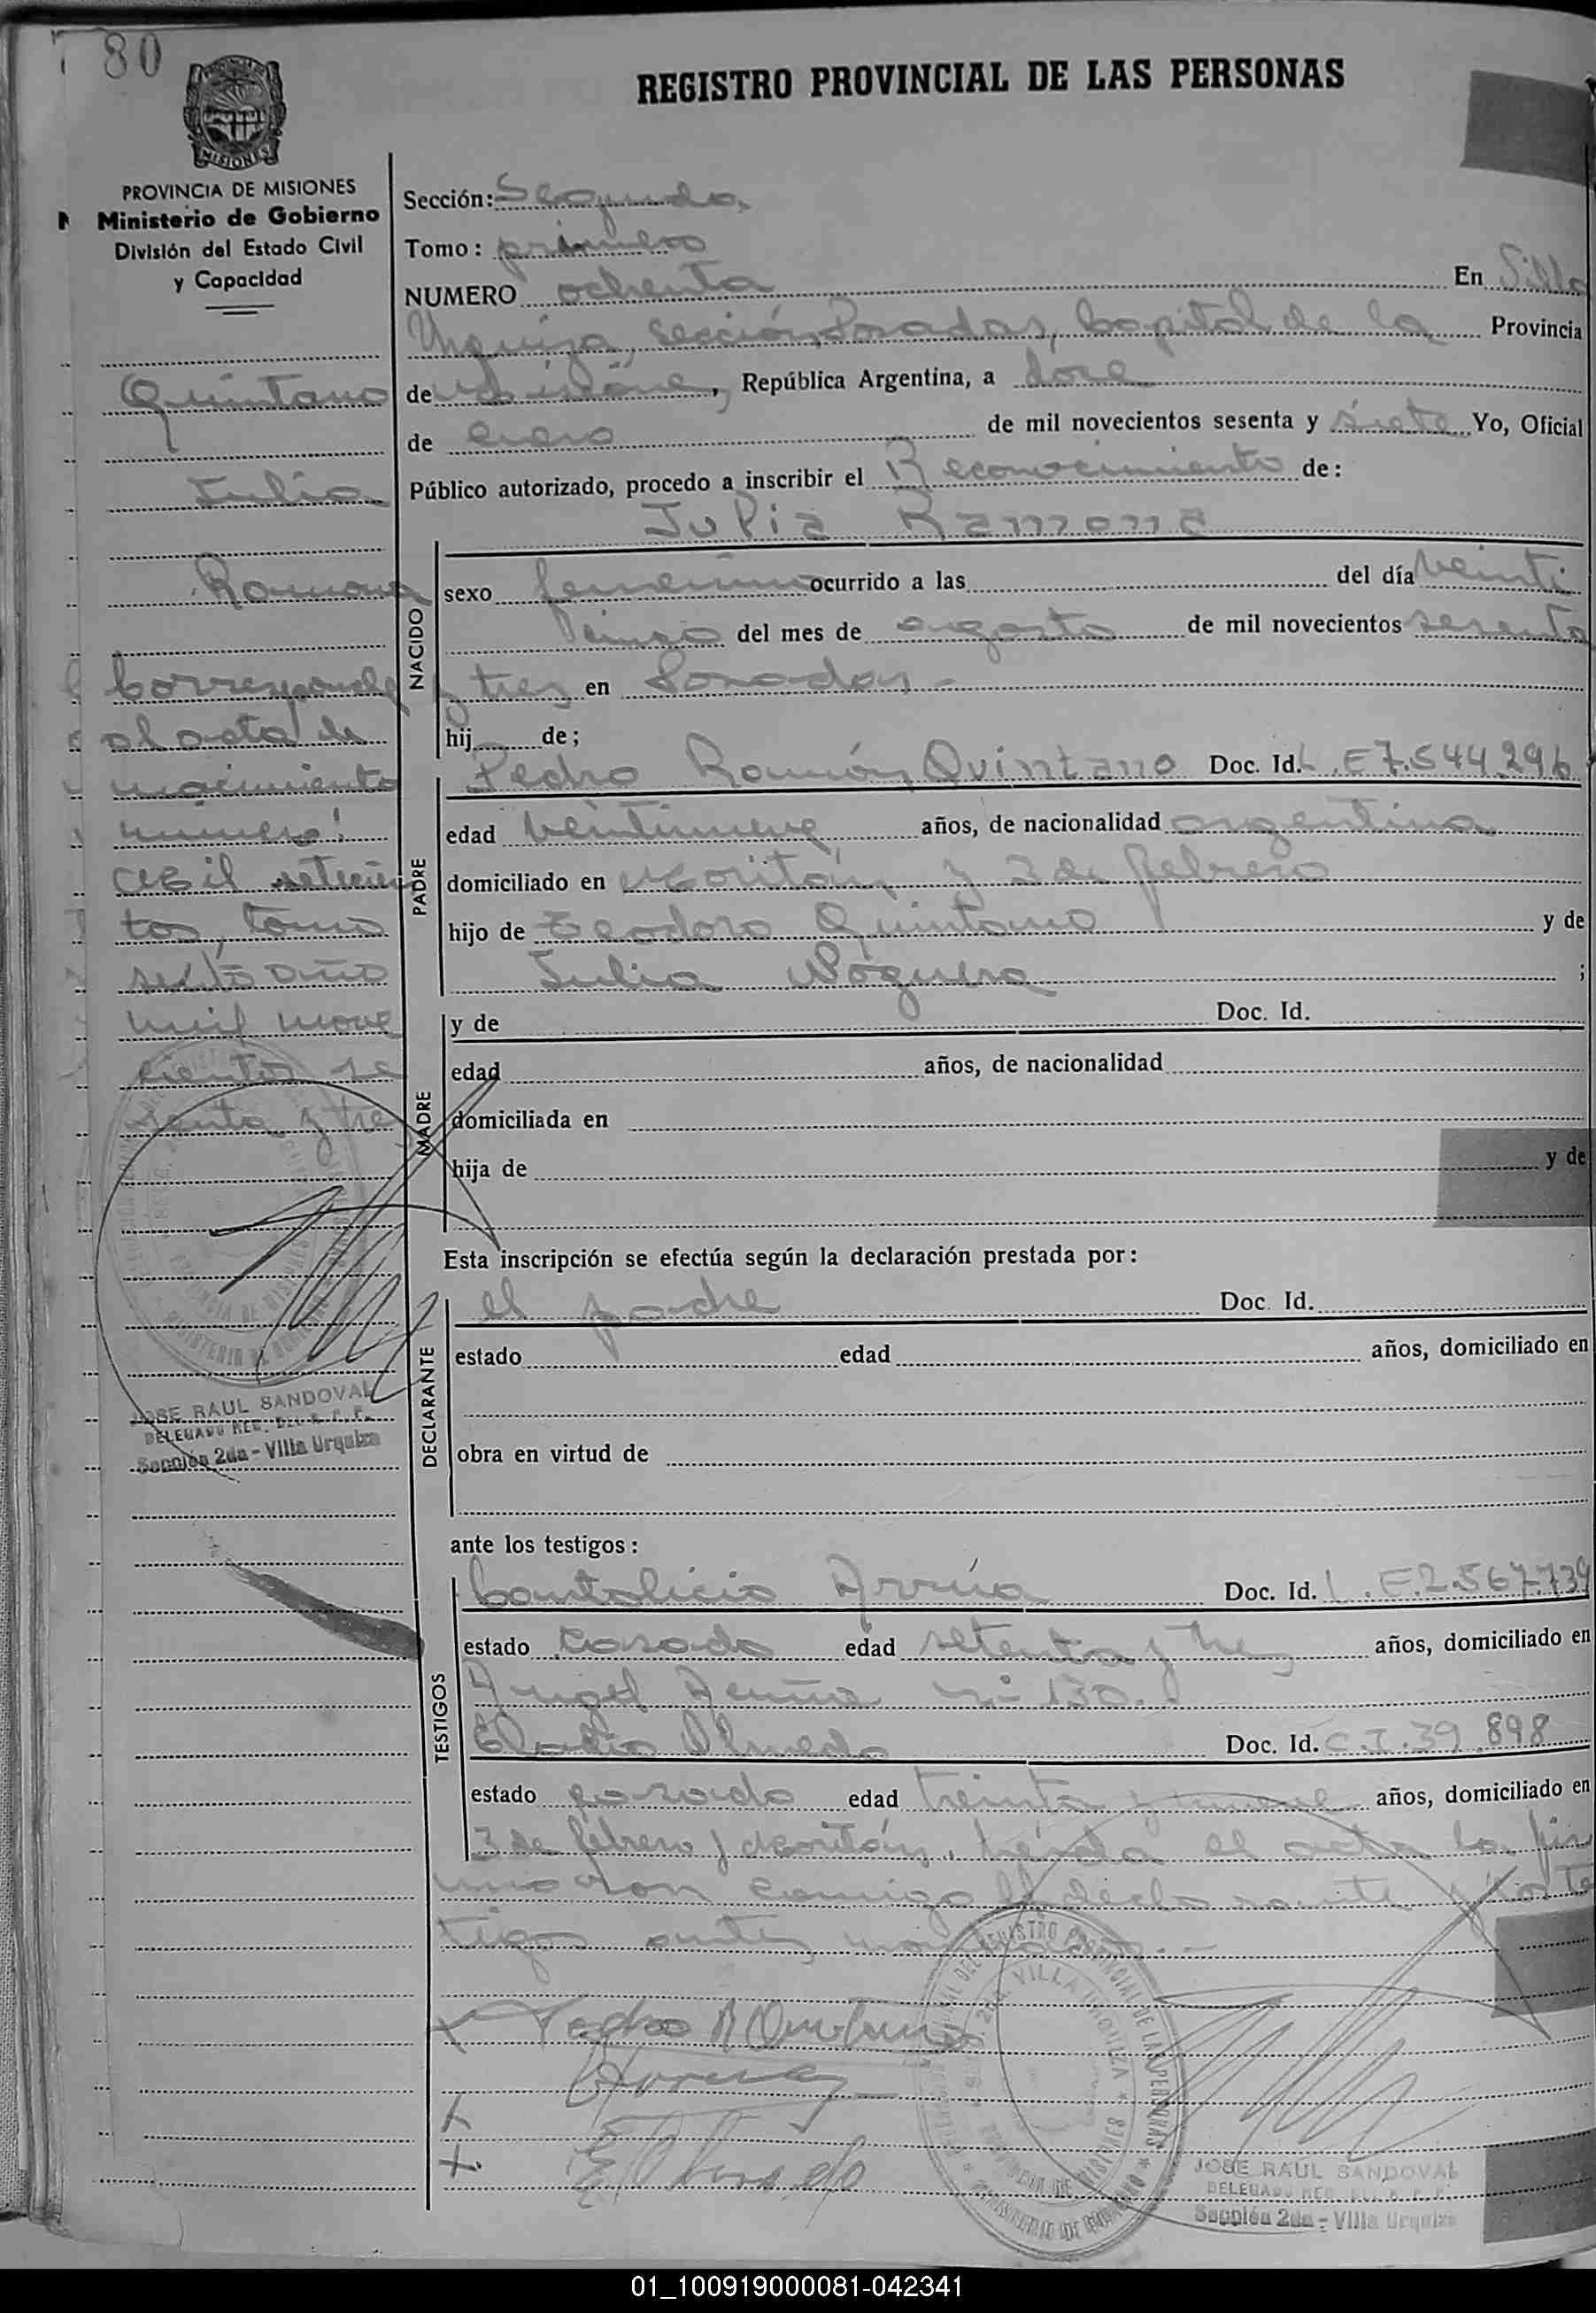 80
REGISTRO PROVINCIAL DE LAS PERSONAS
MISIONES
PROVINCIA DE MISIONES
Ministerio de Gobierno
División del Estado Civil
y Capacidad
Quintano
Julia
Ramona
Corresponde
al acta de
nacimiento
número:
cien mil setecien
tos, tomo
sexto año
mil nove
cientos se
senta y tres
JOSE RAUL SANDOVAL
DELEGADO REG. DEL R. P. P.
Sección 2da - Villa Urquiza
Sección: Segunda
Tomo: primero
NUMERO ochenta En Villa
Urquiza, Sección Posadas, Capital de la Provincia
de Misiones, República Argentina, a doce
de enero de mil novecientos sesenta y siete Yo, Oficial
Público autorizado, procedo a inscribir el Reconocimiento de:
Julia Ramona
NACIDO
sexo femenino ocurrido a las del día veinti
cinco del mes de agosto de mil novecientos sesenta
y tres en Posadas -
hij de;
PADRE
Pedro Ramón Quintano Doc. Id. L.E 7.544.296
edad veintinueve años, de nacionalidad argentina
domiciliado en y 3 de febrero
hijo de Teodoro Quintano y de
Julia Noguera ;
MADRE
y de Doc. Id.
edad años, de nacionalidad
domiciliada en
hija de y de
Esta inscripción se efectúa según la declaración prestada por:
DECLARANTE
el padre Doc. Id.
estado edad años, domiciliado en
obra en virtud de
ante los testigos:
TESTIGOS
Cantalicio Arrúa Doc. Id. L.E.2.567.739
estado casado edad setenta y tres años, domiciliado en
Angel Acuña nº 130.
Eladio Olmedo Doc. Id. C.I.39.898
estado casado edad treinta y nueve años, domiciliado en
3 de febrero y leída el acta la fir
maron conmigo el declarante y los tes
tigos antes
Pedro R Quintano
E Olmedo
VILLA URQUIZA
JOSE RAUL SANDOVAL
DELEGADO REG. DEL R. P. P.
Sección 2da - Villa Urquiza
01_100919000081-042341